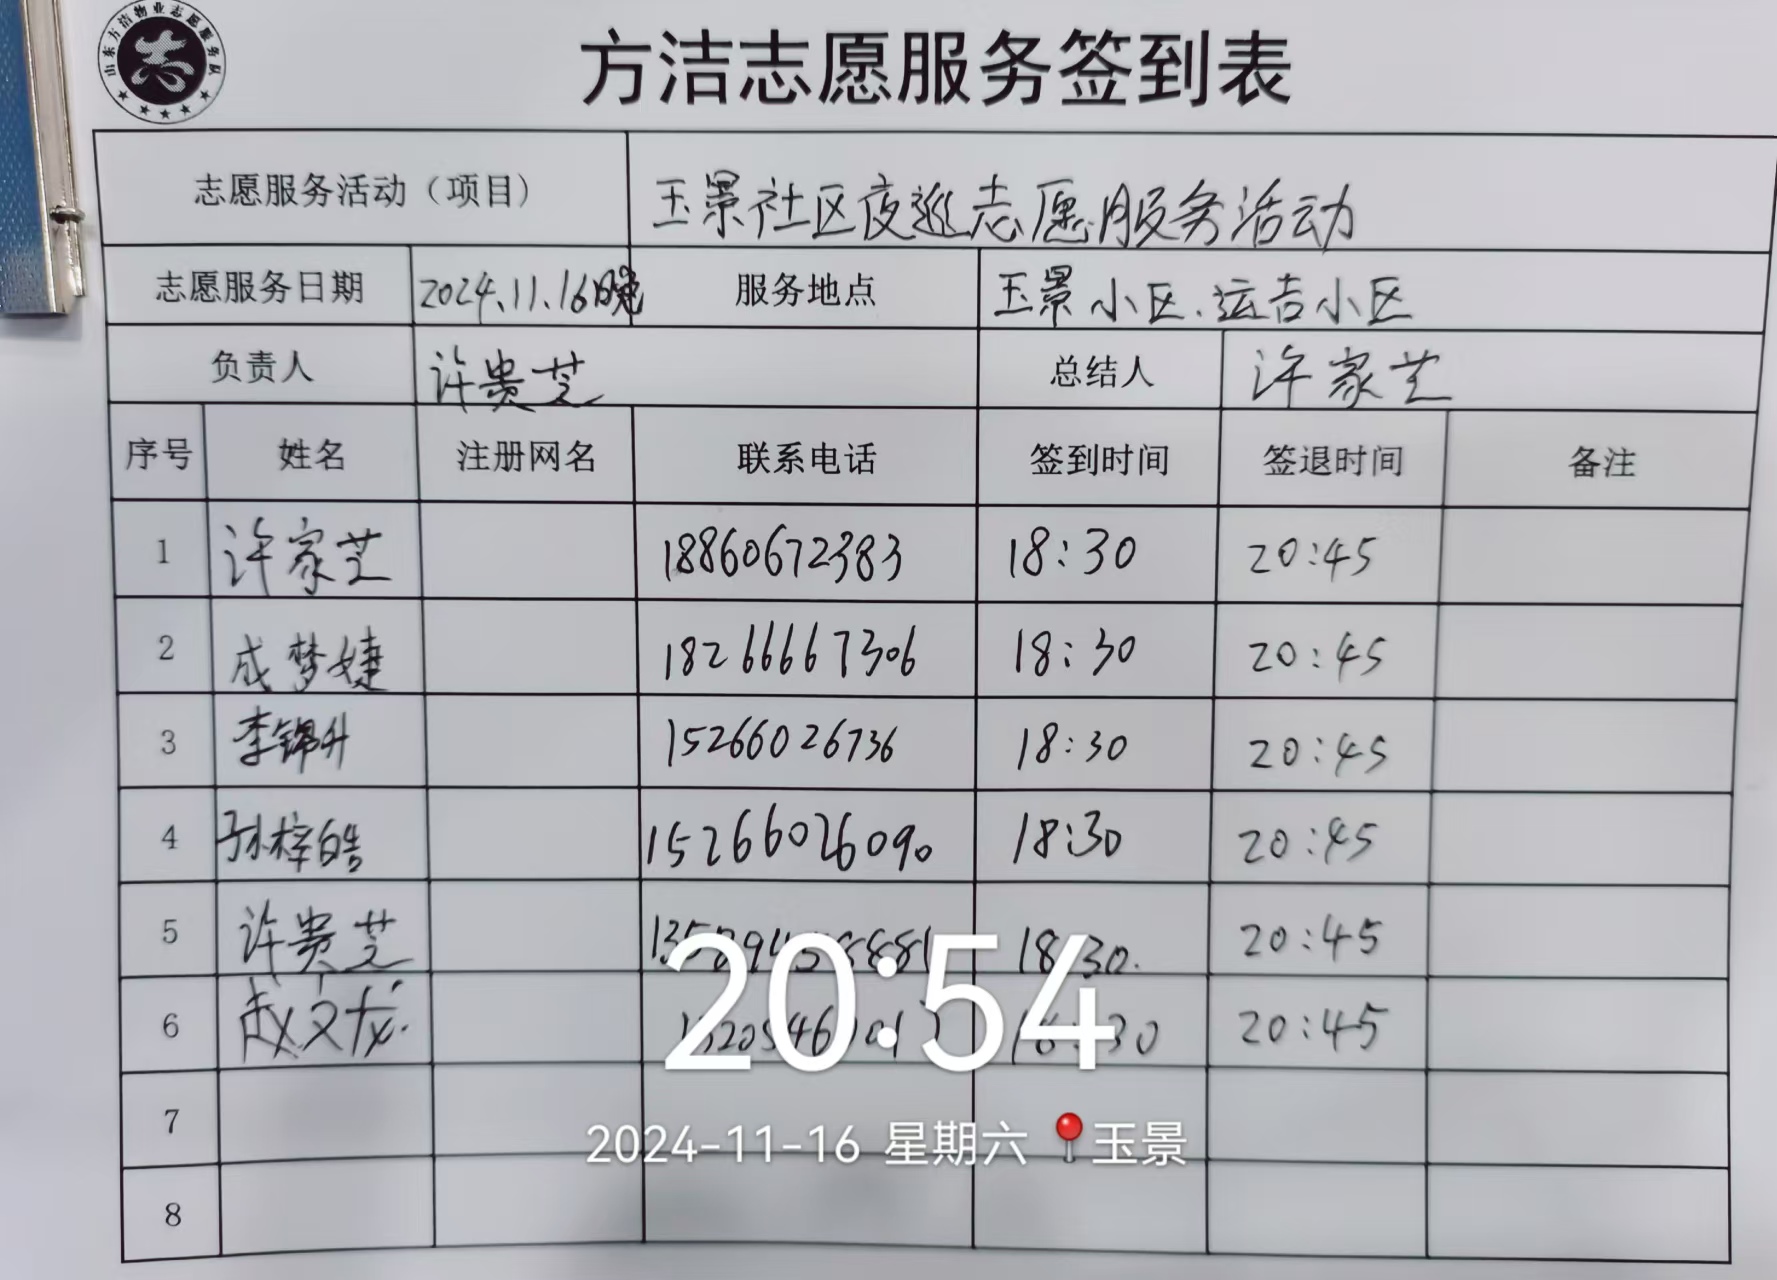 山东方洁物业志愿服务队
志
方洁志愿服务签到表
志愿服务活动（项目） 玉景社区夜巡志愿服务活动
志愿服务日期 2024.11.16晚 服务地点 玉景小区.运吉小区
负责人 许贵芝 总结人 许家芝
序号 姓名 注册网名 联系电话 签到时间 签退时间 备注
1 许家芝 18860672383 18:30 20:45
2 成梦婕 18266667306 18:30 20:45
3 李锦升 15266026736 18:30 20:45
4 孙梓皓 15266026090 18:30 20:45
5 许贵芝 18:30. 20:45
6 赵文龙. 18:30 20:45
20:54
7
2024-11-16 星期六 玉景
8